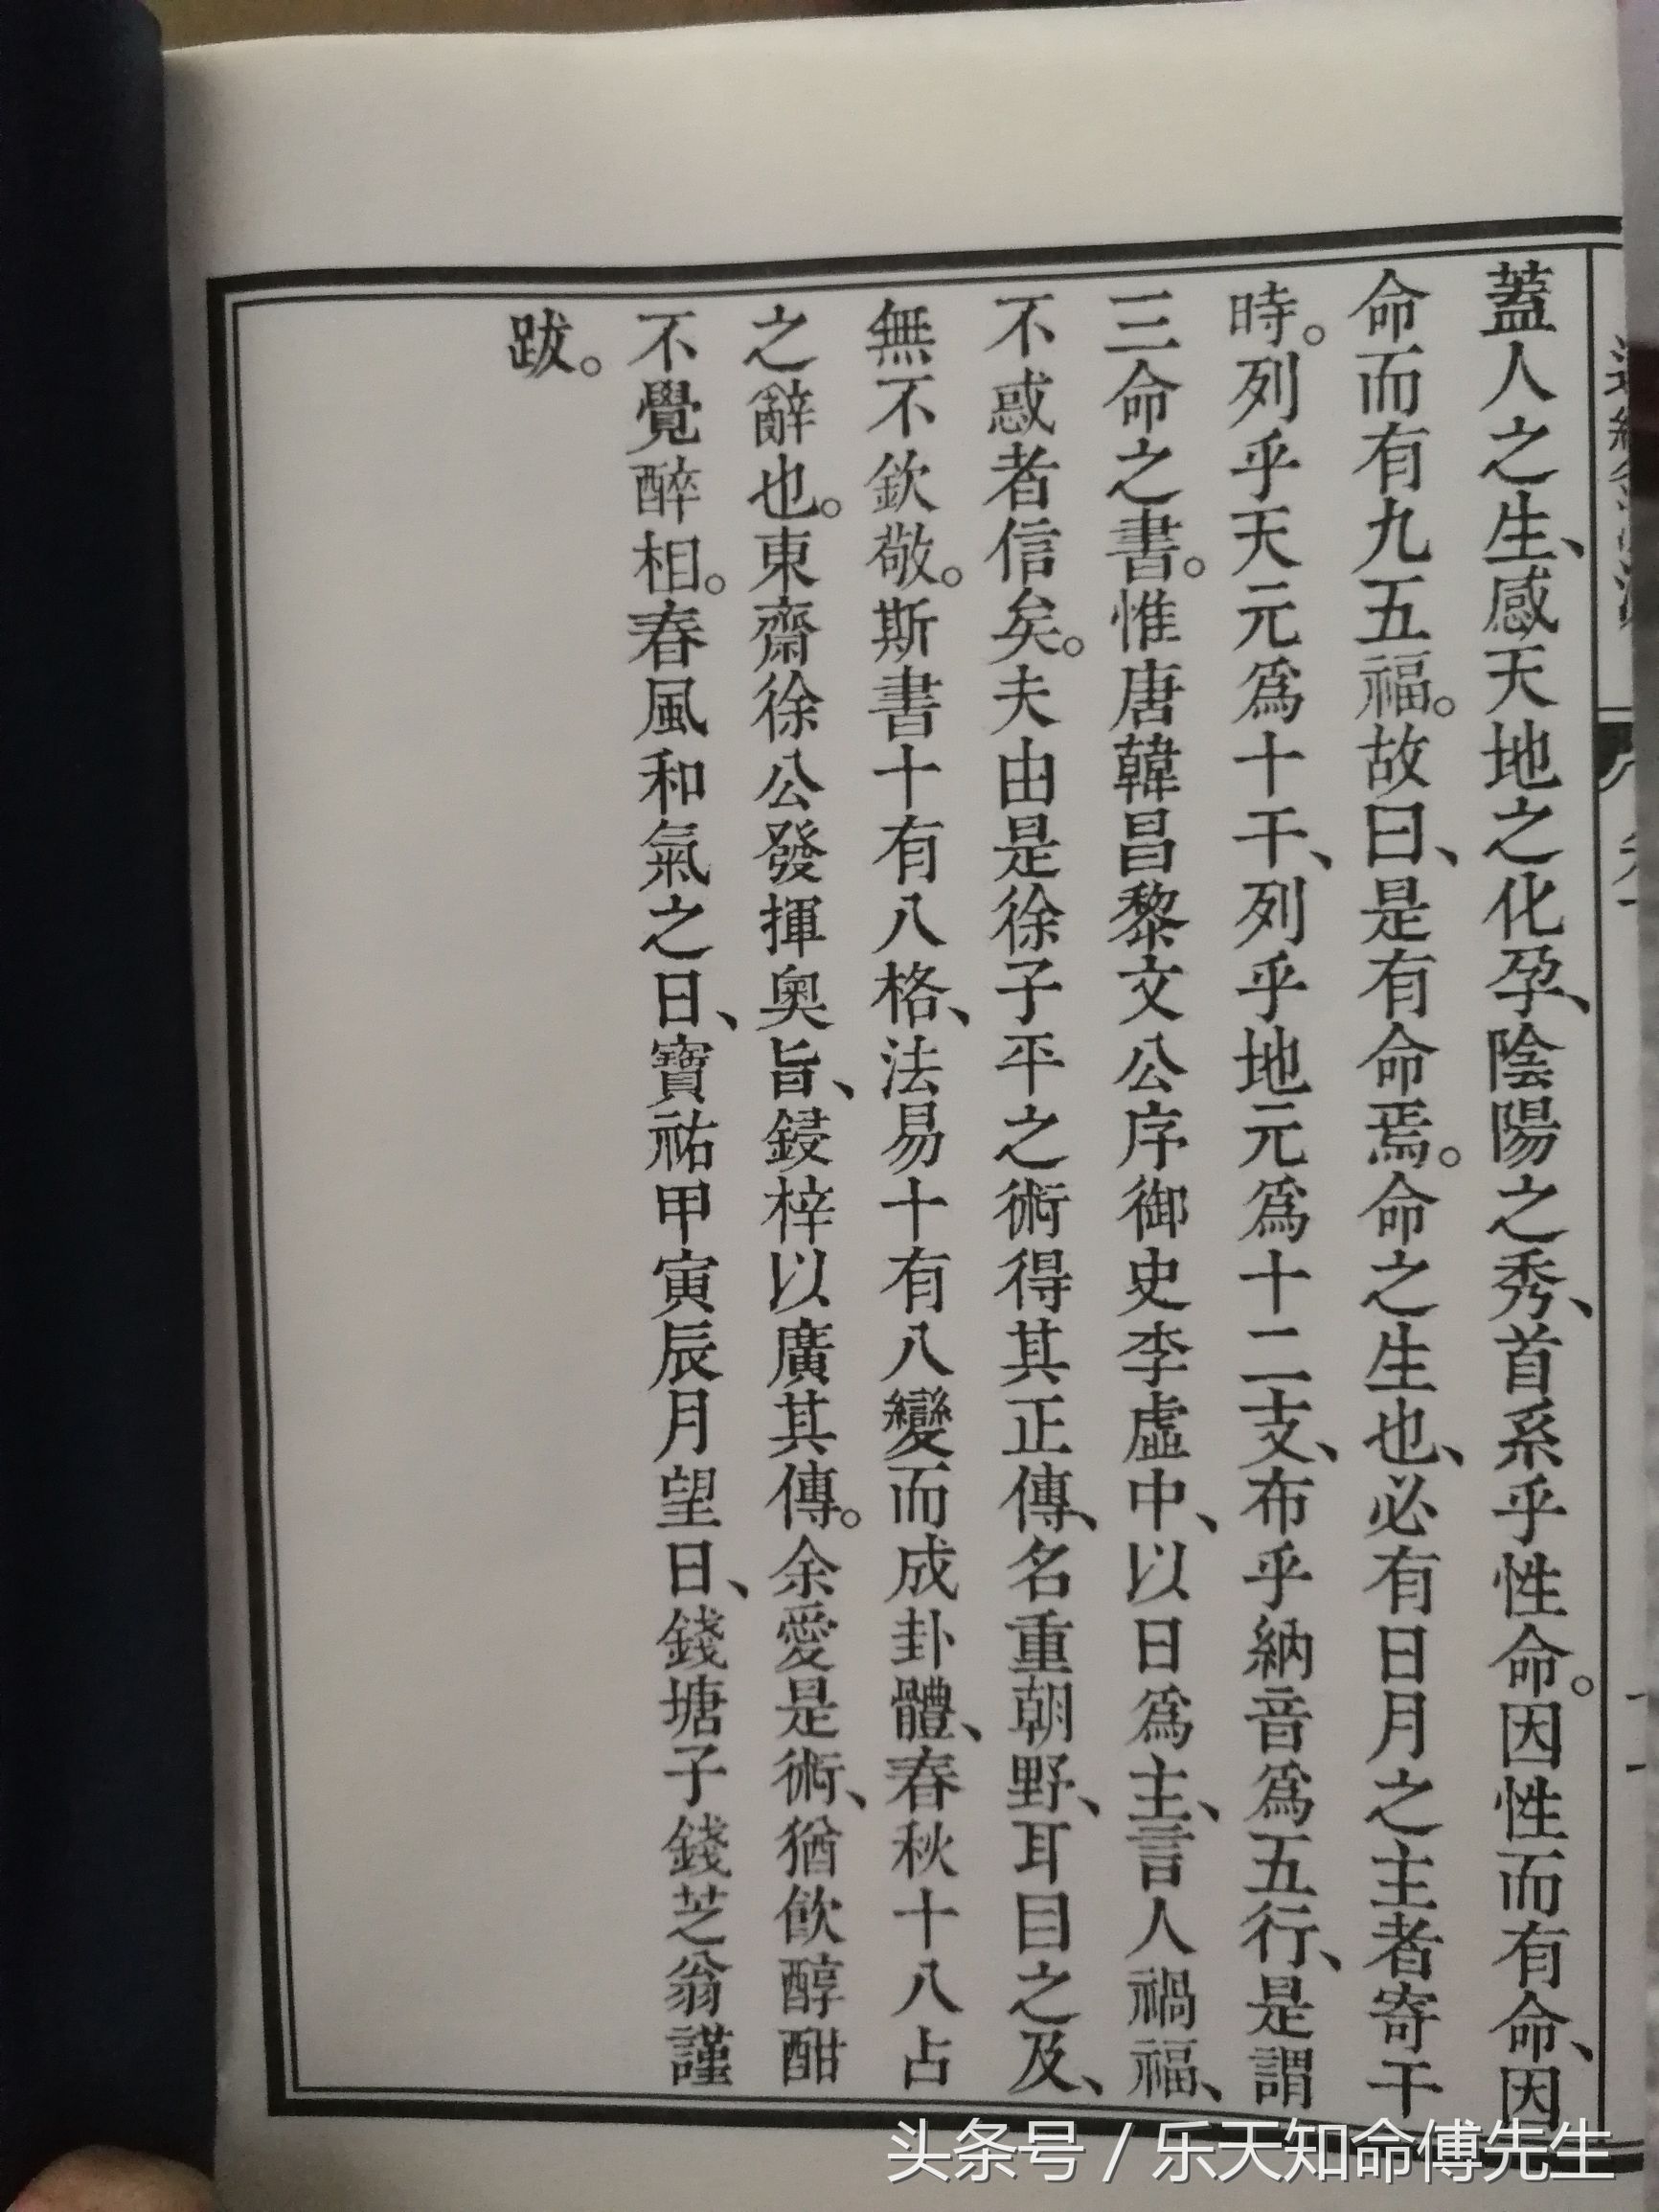 蓋人之生、感天地之化孕、陰陽之秀、首系乎性命。因性而有命、因
命而有九五福。故曰、是有命焉。命之生也、必有日月之主者寄干
時。列乎天元爲十干、列乎地元爲十二支、布乎納音爲五行、是謂
三命之書。惟唐韓昌黎文公序御史李虛中、以日爲主、言人禍福、
不惑者信矣。夫由是徐子平之術得其正傳、名重朝野、耳目之及、
無不欽敬。斯書十有八格、法易十有八變而成卦體、春秋十八占
之辭也。東齋徐公發揮奧旨、鋟梓以廣其傳。余愛是術、猶飮醇酣
不覺醉相。春風和氣之日、寶祐甲寅辰月望日、錢塘子錢芝翁謹
跋。
头条号 / 乐天知命傅先生